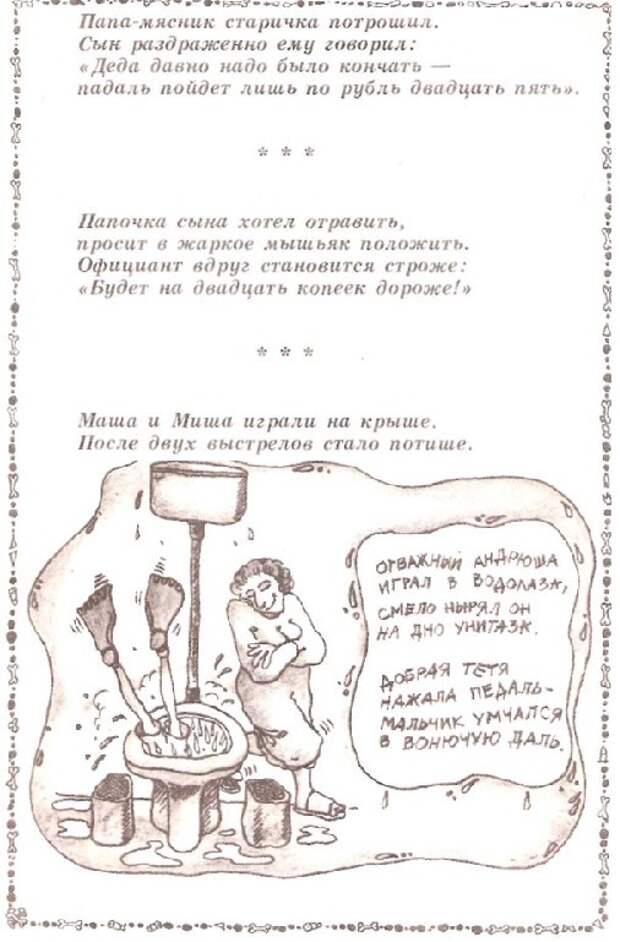 Папа-мясник старичка потрошил.
Сын раздраженно ему говорил:
«Деда давно надо было кончать —
падаль пойдет лишь по рубль двадцать пять».
* * *
Папочка сына хотел отравить,
просит в жаркое мышьяк положить.
Официант вдруг становится строже:
«Будет на двадцать копеек дороже!»
* * *
Маша и Миша играли на крыше.
После двух выстрелов стало потише.
ОТВАЖНЫЙ АНДРЮША
ИГРАЛ В ВОДОЛАЗА,
СМЕЛО НЫРЯЛ ОН
НА ДНО УНИТАЗА.
ДОБРАЯ ТЕТЯ
НАЖАЛА ПЕДАЛЬ-
МАЛЬЧИК УМЧАЛСЯ
В ВОНЮЧУЮ ДАЛЬ.